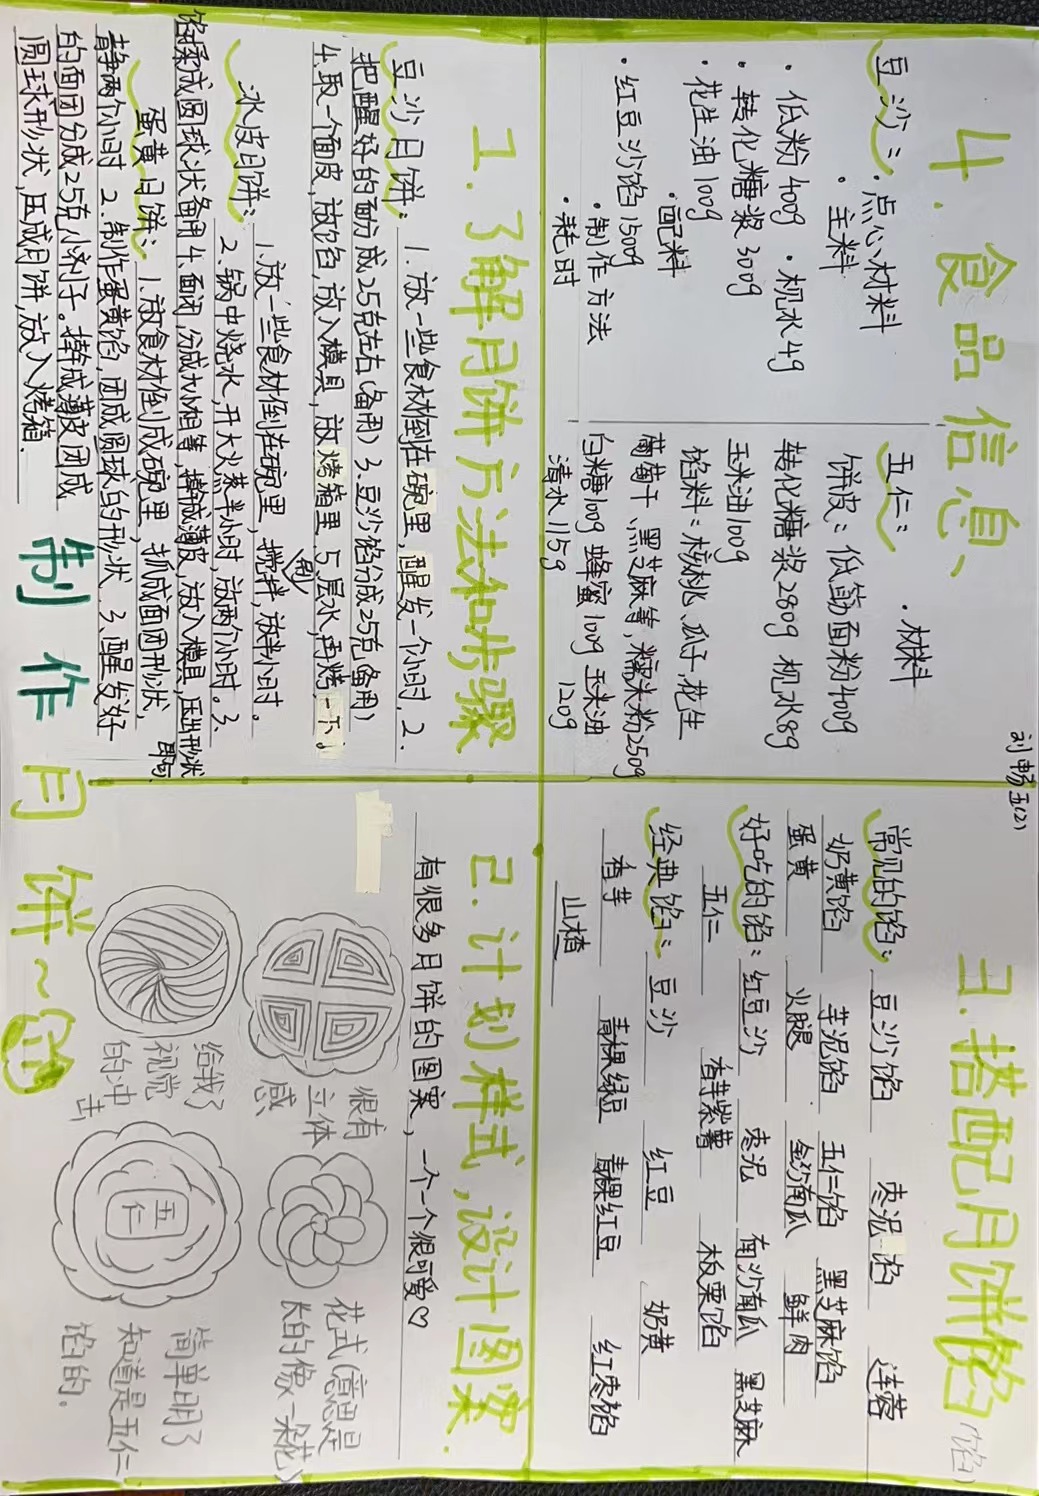 刘畅 五(2)
4. 食品信息
豆沙：·点心材料
·主料
·低粉400g ·枧水4g
·转化糖浆300g
·花生油100g
·配料
·红豆沙馅1500g
·制作方法
·耗时
五仁：
·材料
饼皮：低筋面粉400g
转化糖浆280g 枧水8g
玉米油100g
馅料：核桃、瓜子，花生
葡萄干、黑芝麻等，糯米粉250g
白糖100g 蜂蜜100g 玉米油
清水115g 120g
3.搭配月饼馅(馅)
常见的馅：豆沙馅 枣泥馅 莲蓉
奶黄馅 芋泥馅 五仁馅 黑芝麻馅
蛋黄 火腿 金沙南瓜 鲜肉
好吃的馅：红豆沙 枣泥 南沙南瓜 黑芝麻
五仁 香芋紫薯 板栗馅
经典馅：豆沙 红豆 奶黄
香芋 青稞绿豆 青稞红豆 红枣馅
山楂
1.了解月饼方法和步骤
豆沙月饼：1.放一些食材倒在碗里，醒发一个小时，2.
把醒好的面分成25克左右(备用) 3.豆沙馅分成25克(备用)
4.取一个面皮，放馅，放入模具，放烤箱里 5.层水，再烤一下。
(刷)
冰皮月饼：1.放一些食材倒在碗里，搅拌，放半小时。
2.锅中烧水，开大火蒸半小时，放两个小时。3.
馅揉成圆球状备用4.面团，分成大小相等，擀成薄皮，放入模具，压出形状即可
蛋黄月饼：1.放食材倒成碗里，抓成面团形状，
静两个小时 2.制作蛋黄馅，团成圆球的形状 3.醒发好
的面团分成25克小剂子。擀成薄皮团成
圆球形状，压成月饼，放入烤箱.
2.计划样式，设计图案.
有很多月饼的图案，一个一个很可爱♡
很有
立体
感
给我了
视觉
的冲
击
花式(意思是
长的像一朵花)
五
仁
简单明了
知道是五仁
馅的.
制作月饼~